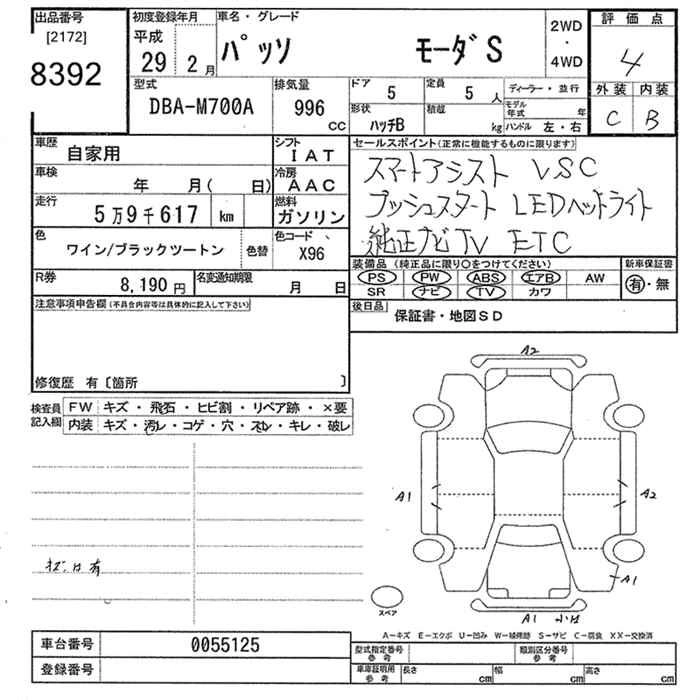 出品番号
[2172]
8392
初度登録年月
平成
29 2月
車名・グレード
パッソ モーダS
2WD
・
4WD
評価点
4
外装 内装
C B
型式
DBA-M700A
排気量
996
CC
ドア
5
定員
5 人
ディーラー・並行
形状
ハッチB
積載
kg
モデル年式 年
ハンドル 左・右
車歴
自家用
シフト
IAT
車検
年 月( 日)
冷房
AAC
走行
5万9千617 km
燃料
ガソリン
色
ワイン/ブラックツートン
色替
色コード
X96
R券
8,190円
名変通知期限
月 日
セールスポイント(正常に機能するものに限ります)
スマートアシスト VSC
プッシュスタート LEDヘッドライト
純正ナビTV ETC
装備品(純正品に限り○をつけてください)
PS PW ABS エアB AW
SR ナビ TV カワ
新車保証書
有・無
後日品
保証書・地図SD
注意事項申告欄(不具合内容等は具体的に記入して下さい)
修復歴 有〔箇所 〕
検査員
記入欄
FW キズ・飛石・ヒビ割・リペア跡・×要
内装 キズ・汚レ・コゲ・穴・スレ・キレ・破レ
A2
A1
A2
A1
A1
スペア
A-キズ E-エクボ U-凹み W-補修跡 S-サビ C-腐食 XX-交換済
車台番号
0055125
登録番号
型式指定番号
参考
類別区分番号
参考
車庫証明用
参考
長さ cm
幅 cm
高さ cm